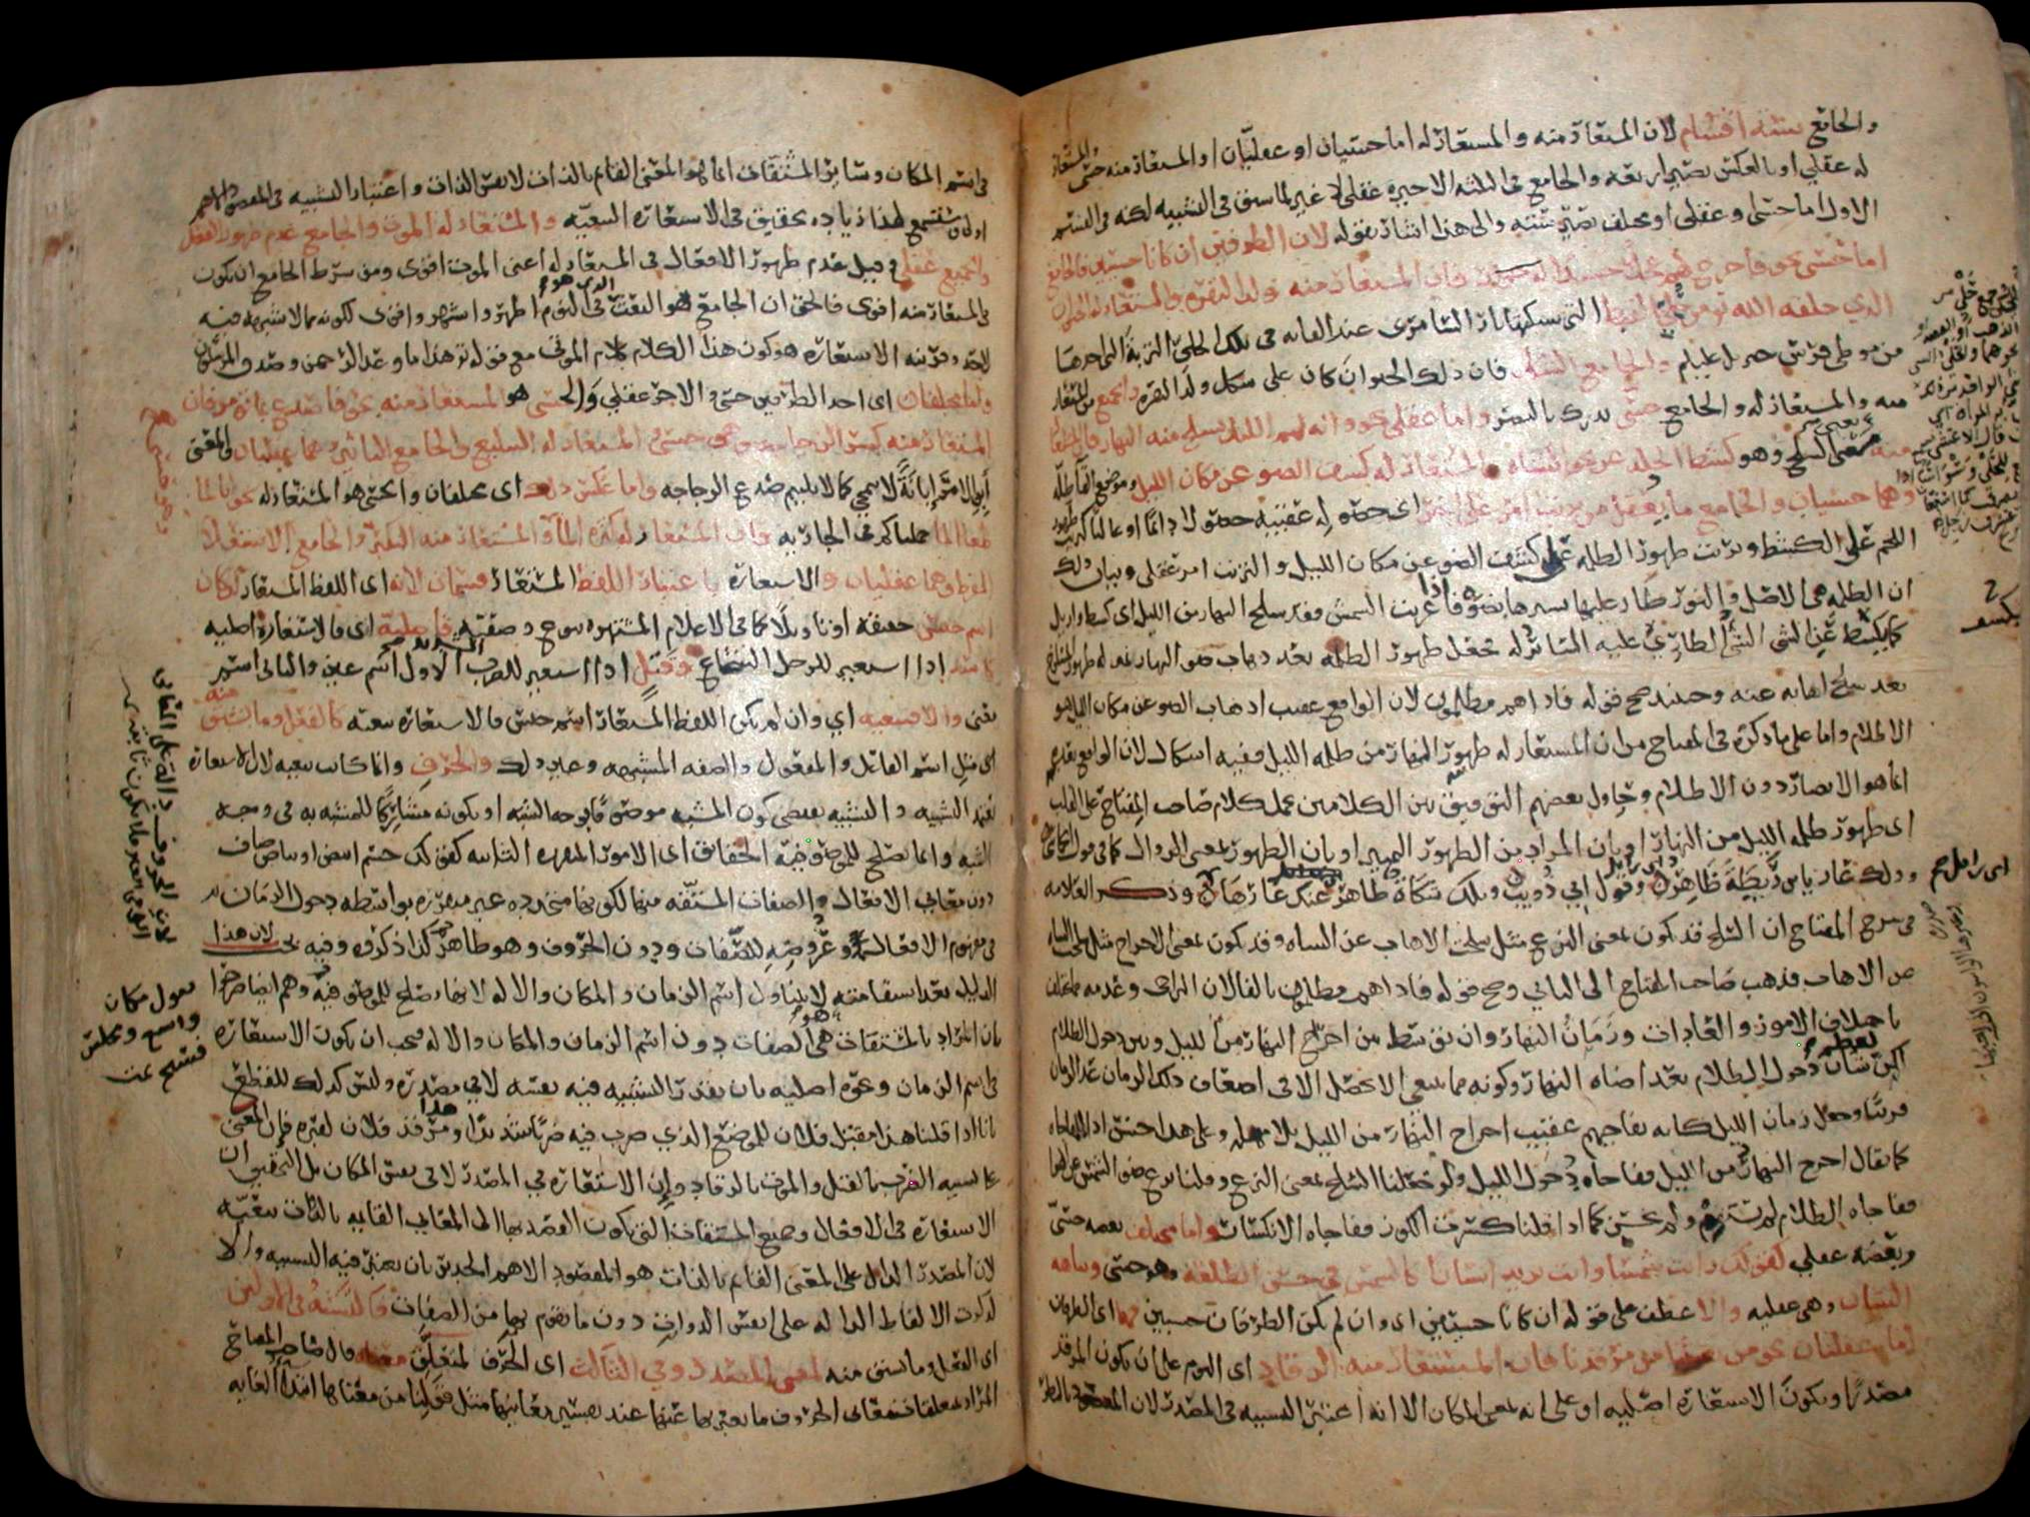 والجامع ستة اقسام لان المستعار منه والمستعار له اما حسيان او عقليان او المستعار منه حسي والمستعار
له عقلي او بالعكس تصير اربعة والجامع في الثلثة الاخيرة عقلي لا غير لما سبق في التشبيه لكنه في القسم
الاول اما حسي او عقلي او مختلف تصير ستة والى هذا اشار بقوله لان الطرفين ان كانا حسيين فالجامع
اما حسي نحو فاخرج لهم عجلا جسدا له خوار فان المستعار منه ولد البقرة والمستعار له الحيوان
الذي خلقه الله تع من حلي القبط التي سبكتها نار السامري عند القائه في تلك الحلي التربة التي اخذها
من موطئ فرس جبريل عليلم والجامع الشكل فان ذلك الحيوان كان على شكل ولد البقرة والجميع من المستعار
منه والمستعار له والجامع حسي يدرك بالبصر واما عقلي نحو واية لهم الليل نسلخ منه النهار فان المستعار
منه معنى السلخ وهو كشط الجلد عن نحو الشاة والمستعار له كشف الضو عن مكان الليل وموضع القا ظله
وهما حسيان والجامع ما يعقل من ترتب امر على اخر اى حصوله عقيبه حصولا دايما او غالبا كترتب ظهور
اللحم على الكشط وترتب ظهور الظلمة على كشف الضو عن مكان الليل والترتب امر عقلي وبيان ذلك
ان الظلمة هي الاصل والنور طار عليها يسترها بضوئه فاذا غربت الشمس فقد سلخ النهار من الليل اى كشط وازيل
كما يكشط عن الشي الشي الطاري عليه الساتر له فجعل ظهور الظلمة بعد ذهاب ضو النهار بمنزلة ظهور المسلوخ
بعد سلخ اهابه عنه وحينئذ صح قوله فاذا هم مظلمون لان الواقع عقيب اذهاب الضو عن مكان الليل هو
الاظلام واما على ما ذكره في المفتاح من ان المستعار له ظهور النهار من ظلمة الليل ففيه اشكال لان الواقع بعده
انما هو الابصار دون الاظلام وحاول بعضهم التوفيق بين الكلامين بحمل كلام صاحب المفتاح على القلب
اى ظهور ظلمة الليل من النهار او بان المراد من الظهور التمييز او بان الظهور بمعنى الزوال كما في قول الحماسي
وذلك عار يا بن ريطة ظاهر وقول ابي ذويب وتلك شكاة ظاهر عنك عارها وذكر العلامة
في شرح المفتاح ان السلخ قد يكون بمعنى النزع مثل سلخت الاهاب عن الشاه وقد يكون بمعنى الاخراج مثل سلخت الشاه
من الاهاب فذهب صاحب المفتاح الى الثاني وصح قوله فاذا هم مظلمون بالفا لان التراخي وعدمه مما يختلف
باختلاف الامور والعادات وزمان النهار وان توسط بين اخراج النهار من الليل وبين دخول الظلام
لكن لعظم شان دخول الظلام بعد اضاة النهار وكونه مما ينبغي الا يحصل الا في اضعاف ذلك الزمان عد الزمان
قريبا وجعل زمان الليل كانه يفاجيهم عقيب اخراج النهار من الليل بلا مهلة وعلى هذا حسن اذا المفاجاة
كما يقال اخرج النهار من الليل ففاجاه دخول الليل ولو جعلنا السلخ بمعنى النزع وقلنا نزع ضو الشمس عن الهوا
ففاجاه الظلام لم يستقم ولم يحسن كما اذا قلنا كسرت الكوز ففاجاه الانكسار واما مختلف بعضه حسي
وبعضه عقلي كقولك رايت شمسا وانت تريد انسانا كالشمس في حسن الطلعة وهو حسي ونباهة
الشان وهي عقلية والا عطف على قوله ان كانا حسيين اى وان لم يكن الطرفان حسيين فهما اى الطرفان
اما عقليان نحو من بعثنا من مرقدنا فان المستعار منه الرقاد اى النوم على ان يكون المرقد
مصدرا ويكون الاستعارة اصلية او على انه بمعنى المكان الا انه اعتبر التشبيه في المصدر لان المقصود بالنظر
للحلى جمع حلي
الذهب او الفضة
يكشف
اى زايل
في اسم المكان وساير المشتقات انما هو المعنى القايم بالذات لا نفس الذات واعتبار التشبيه في المقصود الاهم
اولى وستسمع لهذا زيادة تحقيق في الاستعارة التبعية والمستعار له الموت والجامع عدم ظهور الفعل
والجميع عقلي وقيل عدم ظهور الافعال في المستعار له اعني الموت اقوى ومن شرط الجامع ان يكون
في المستعار منه اقوى فالحق ان الجامع هو البعث الذي هو في النوم اظهر واشهر واقوى لكونه مما لا شبهة فيه
لاحد وقرينة الاستعارة هو كون هذا الكلام كلام الموتى مع قوله تع هذا ما وعد الرحمن وصدق المرسلون
واما مختلفان اى احد الطرفين حسي والاخر عقلي والحسي هو المستعار منه نحو فاصدع بما تومر فان
المستعار منه كسر الزجاجة وهو حسي والمستعار له التبليغ والجامع التاثير وهما عقليان والمعنى
ابن الامر ابانة لا تنمحي كما لا يلتيم صدع الزجاجة واما عكس ذلك اى مختلفان والحسي هو المستعار له نحو انا لما
طغا الما حملناكم في الجارية فان المستعار له كثرة الما والمستعار منه التكبر والجامع الاستعلا
المفرط وهما عقليان والاستعارة باعتبار اللفظ المستعار قسمان لانه اى اللفظ المستعار ان كان
اسم جنس حقيقة او تاويلا كما في الاعلام المشتهره بنوع وصفية فاصلية اى فالاستعارة اصلية
كاسد اذا استعير للرجل الشجاع وقتل اذا استعير للضرب الشديد الاول اسم عين والثاني اسم
معنى والا فتبعية اي وان لم يكن اللفظ المستعار اسم جنس فالاستعارة تبعية كالفعل وما يشتق منه
اى مثل اسم الفاعل والمفعول والصفة المشبهه وغير ذلك والحرف وانما كانت تبعية لان الاستعارة
تعتمد التشبيه والتشبيه يقتضي كون المشبه موصوفا بوجه الشبه او بكونه مشاركا للمشبه به في وجه
الشبه وانما يصلح للموصوفية الحقايق اى الامور المتقررة الثابتة كقولك جسم ابيض او بياض صاف
دون معاني الافعال والصفات المشتقة منها لكونها متجددة غير متقررة بواسطة دخول الزمان
في مفهوم الافعال وعروضه للصفات ودون الحروف وهو ظاهر كذا ذكروه وفيه بحث لان هذا
الدليل بعد استقامته لا يتناول اسم الزمان والمكان والاله لانها تصلح للموصوفية وهم ايضا صرحوا
بان المراد بالمشتقات هي الصفات دون اسم الزمان والمكان والاله فيجب ان يكون الاستعارة
في اسم الزمان ونحوه اصلية بان يقدر التشبيه فيه نفسه لا في مصدره وليس كذلك للقطع
بانا اذا قلنا هذا مقتل فلان للموضع الذي ضرب فيه ضربا شديدا ومرقد فلان لقبره فان المعنى
على تشبيه الضرب بالقتل والموت بالرقاد وان الاستعارة في المصدر لا في نفس المكان بل التحقيق ان
الاستعارة في الافعال وجميع المشتقات التي يكون القصد بها الى المعاني القايمة بالذات تبعية
لان المصدر الدال على المعنى القايم بالذات هو المقصود الاهم الجدير بان يعتبر فيه التشبيه والا
لذكرت الالفاظ الدالة على نفس الذوات دون ما يقوم بها من الصفات فالتشبيه في الاولين
اى الفعل وما يشتق منه لمعنى المصدر وفي الثالث اى الحرف لمتعلق معناه قال صاحب المفتاح
المراد بمتعلقات معاني الحروف ما يعبر بها عنها عند تفسير معانيها مثل قولنا من معناها ابتدا الغاية
يقول مكان
واسع ومجلس
فسيح